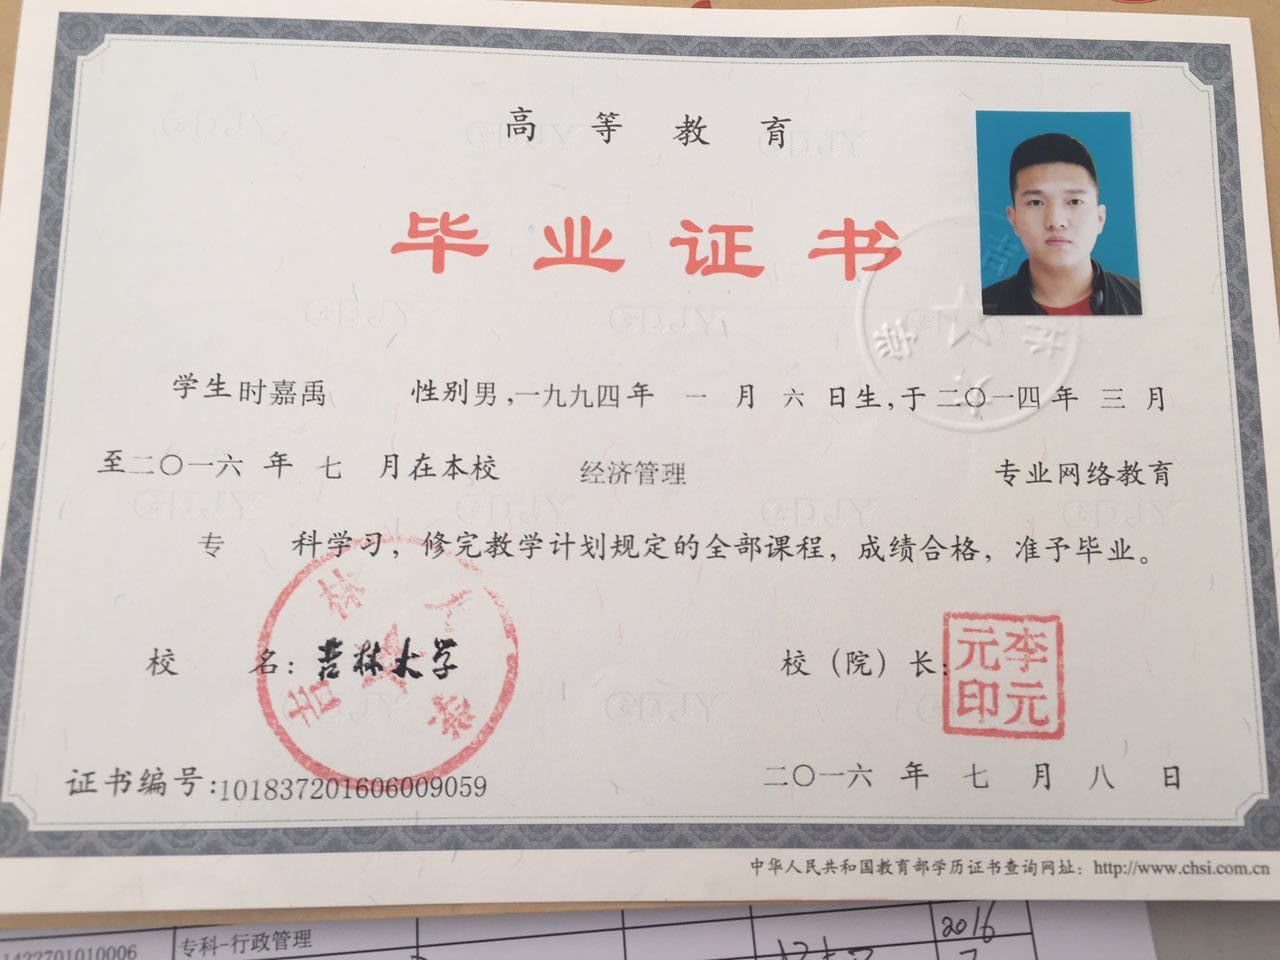 高等教育
毕业证书
学生时嘉禹 性别男,一九九四年 一 月 六 日生,于二〇一四年 三 月
至二〇一六 年 七 月在本校 经济管理 专业网络教育
专 科学习，修完教学计划规定的全部课程，成绩合格，准予毕业。
校 名：吉林大学
校（院）长：
李元元印
吉林大学
证书编号:101837201606009059
二〇一六 年 七 月 八 日
中华人民共和国教育部学历证书查询网址：http://www.chsi.com.cn
1422701010006 专科-行政管理 2016